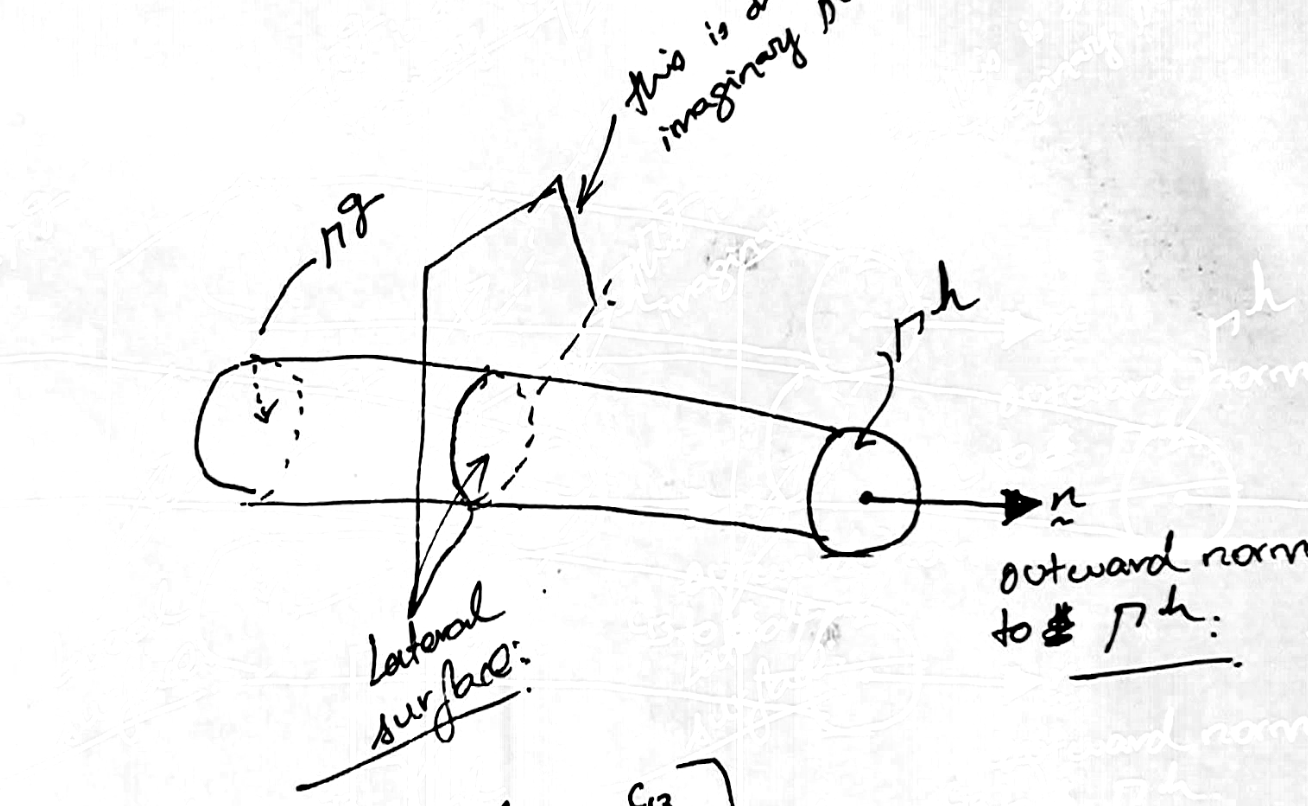 this is
imaginary
Γg
Γh
n
outward norm
to Γh:
Lateral
surface:
C13